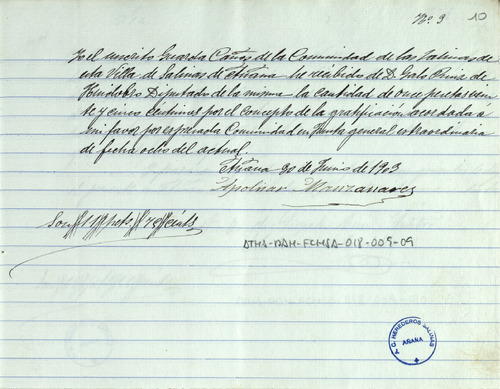 Nº 9 10
Yo el inscrito Guarda Cañas de la Comunidad de las Salinas de
esta Villa de Salinas de Añana he recibido de D. Galo
Diputado de la misma la cantidad de once pesetas vein
te y cinco céntimos por el concepto de la gratificación acordada á
mi favor por expresada Comunidad en Junta general extraordinaria
de fecha ocho del actual.
Añana 30 de Junio de 1903
Apolinar Manzanares
Son 11 pets 25 cents
ATHA-DAH-FCMSA-018-009-09
T.C. HEREDEROS SALINAS
AÑANA